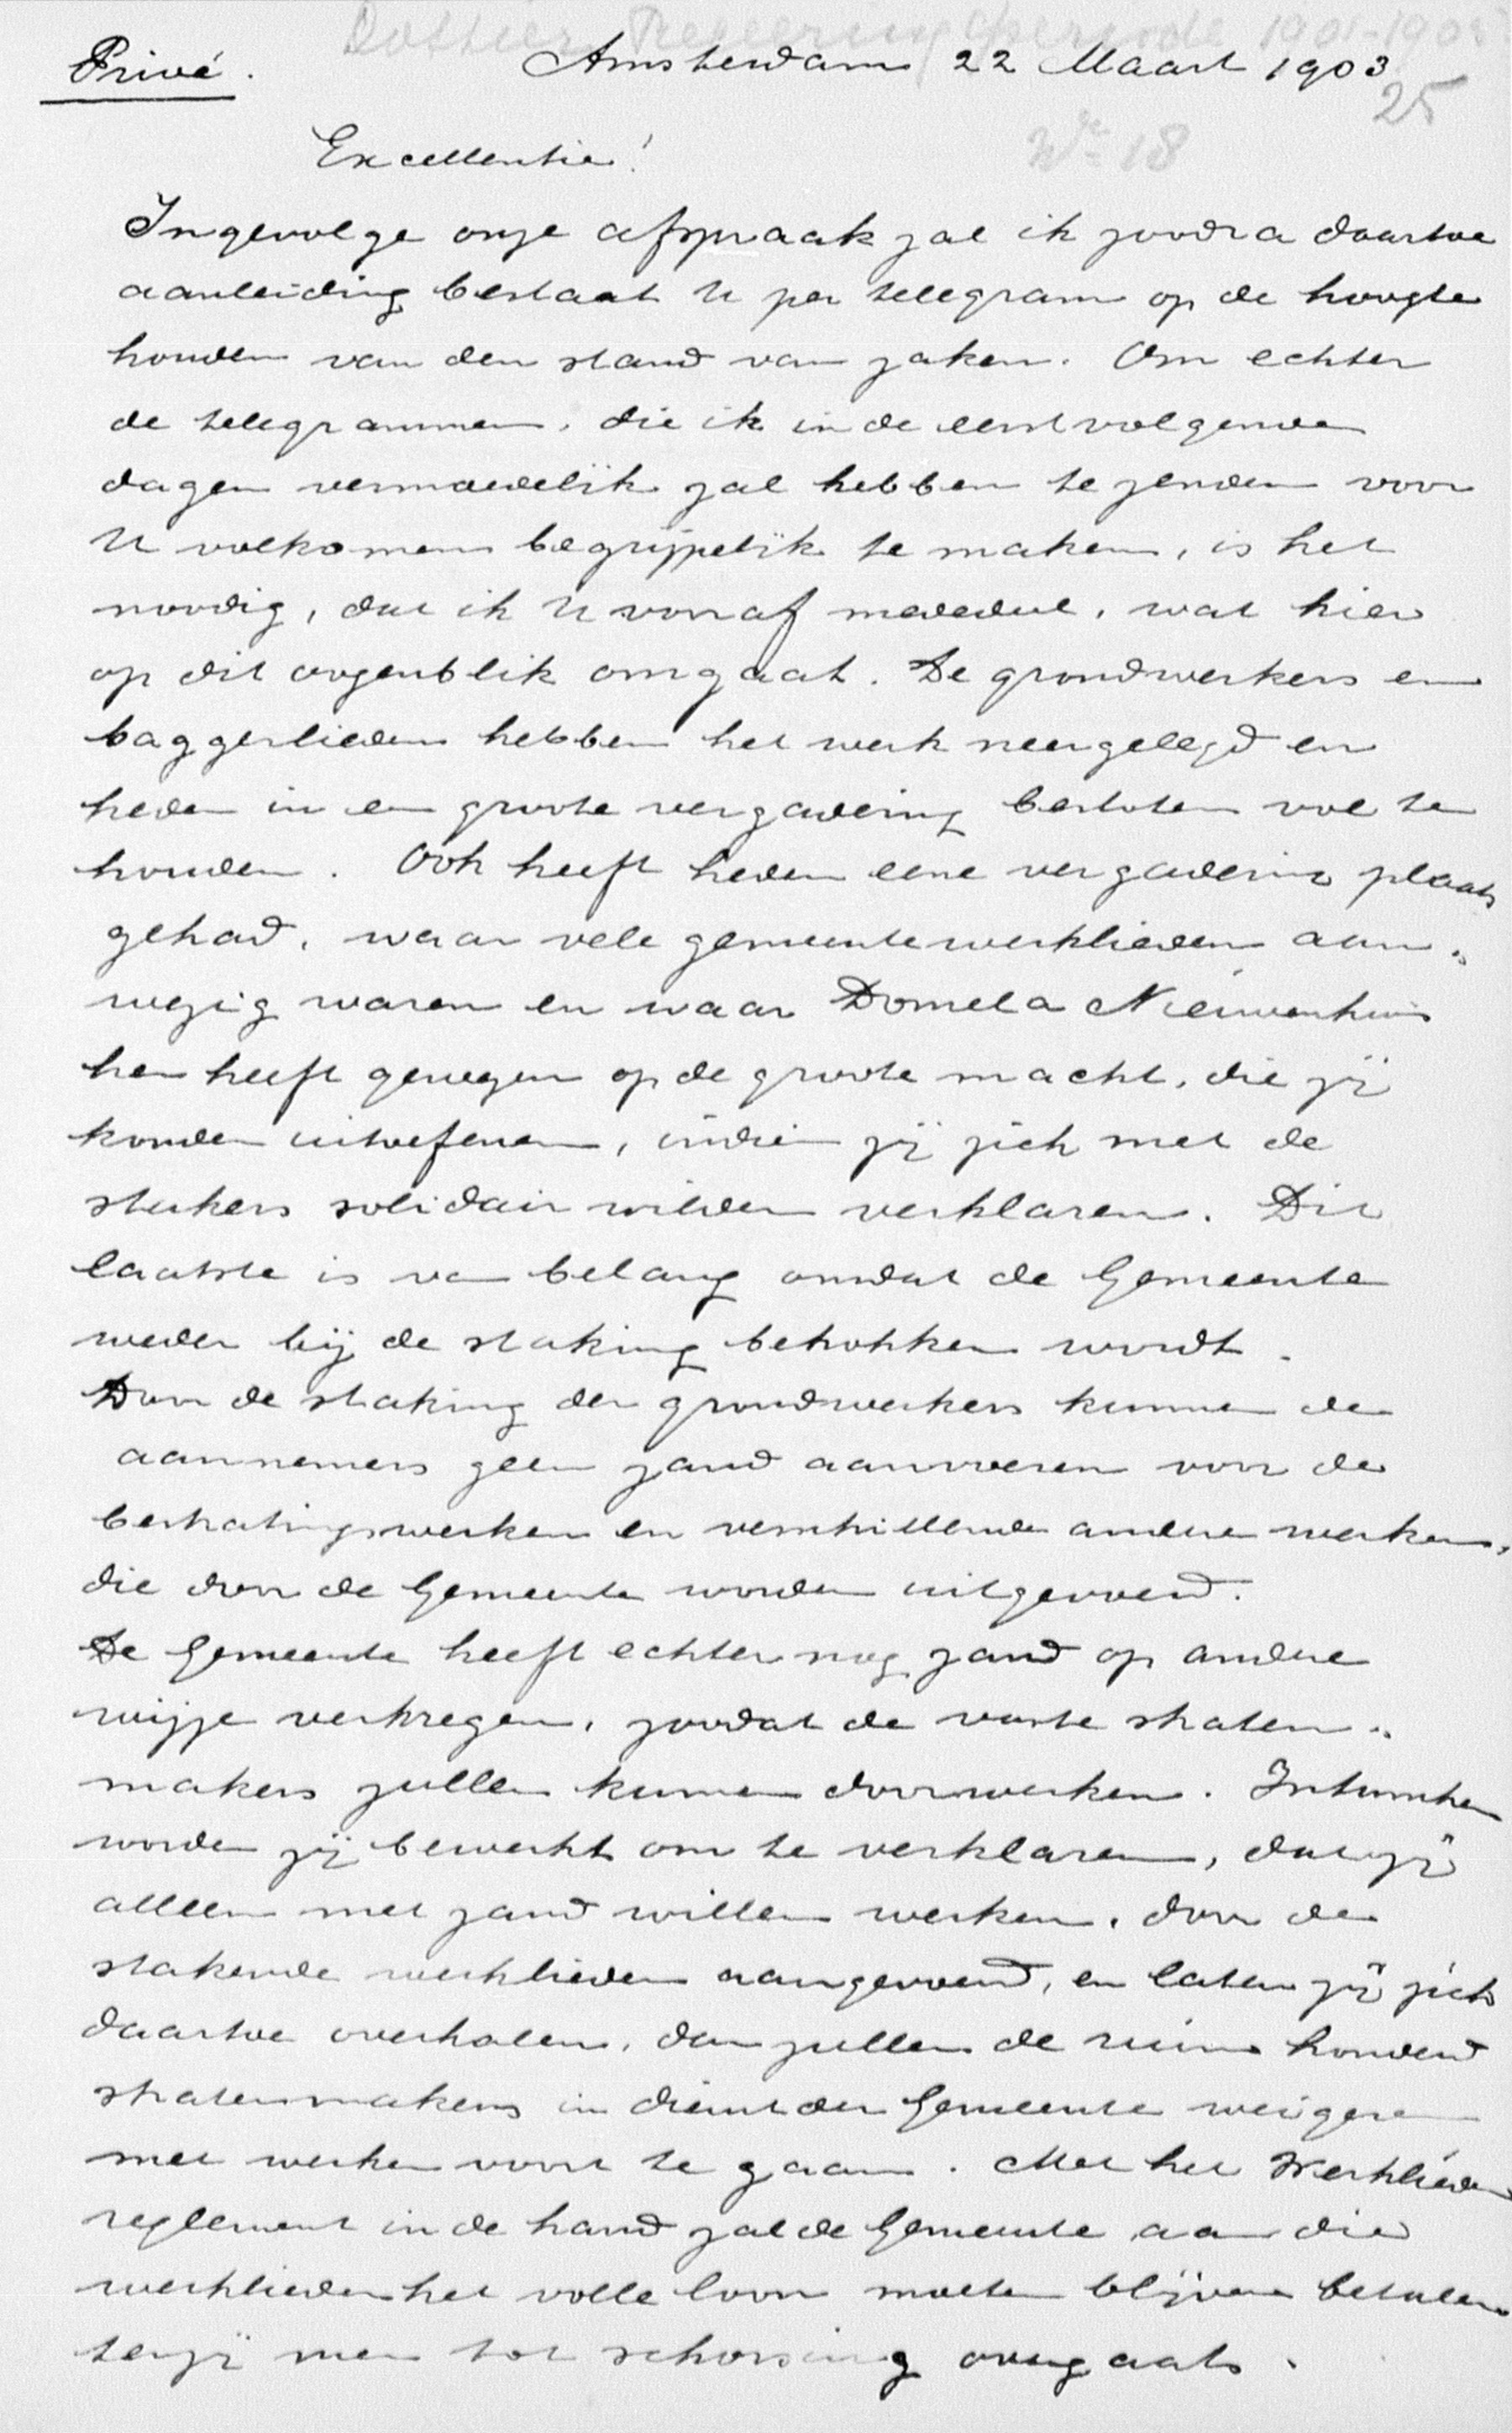 Dossier Regeering periode 1901-1905
Privé. Amsterdam 22 Maart 1903
25
No 18
Excellentie!
Ingevolge onze afspraak zal ik zoodra daartoe
aanleiding bestaat U per telegram op de hoogte
houden van den stand van zaken. Om echter
de telegrammen, die ik in de eerstvolgende
dagen vermoedelijk zal hebben te zenden voor
U volkomen begrijpelijk te maken, is het
noodig, dat ik U vooraf mededeel, wat hier
op dit oogenblik omgaat. De grondwerkers en
baggerlieden hebben het werk neergelegd en
heden in een groote vergadering besloten vol te
houden. Ook heeft heden eene vergadering plaats
gehad, waar vele gemeentewerklieden aan„
wezig waren en waar Domela Nieuwenhuis
hen heeft gewezen op de groote macht, die zij
konden uitoefenen, indien zij zich met de
stakers solidair wilden verklaren. Dit
laatste is van belang omdat de Gemeente
weder bij de staking betrokken wordt.
Door de staking der grondwerkers kunnen de
aannemers geen zand aanvoeren voor de
bestratingswerken en verschillende andere werken,
die door de Gemeente worden uitgevoerd.
De Gemeente heeft echter nog zand op andere
wijze verkregen, zoodat de vaste straten„
makers zullen kunnen doorwerken. Intusschen
worden zij bewerkt om te verklaren, dat zij
alleen met zand willen werken, door de
stakende werklieden aangevoerd, en laten zij zich
daartoe overhalen, dan zullen de ruim honderd
stratenmakers in dienst der Gemeente weigeren
met werken voort te gaan. Met het Werklieden
reglement in de hand zal de Gemeente aan die
werklieden het volle loon moeten blijven betalen
tenzij men tot schorsing overgaat.